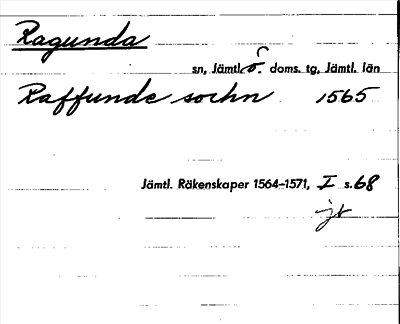 Ragunda
sn, Jämtl. ö. doms. tg, Jämtl. län
Raffunde sochn 1565
Jämtl. Räkenskaper 1564-1571, I s.68